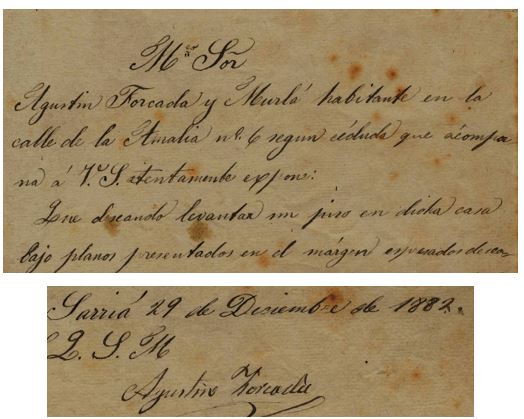 M.ᵉ Sor
Agustin Forcada y Murlá habitante en la
calle de la Amalia nº. 6 segun cédula que acompa
ña á V.ᵃ S. atentamente expone:
Que deseando levantar un piso en dicha casa
bajo planos presentados en el márgen espresados
Sarriá 29 de Diciembre de 1882.
Q. S. M
Agustin Forcada